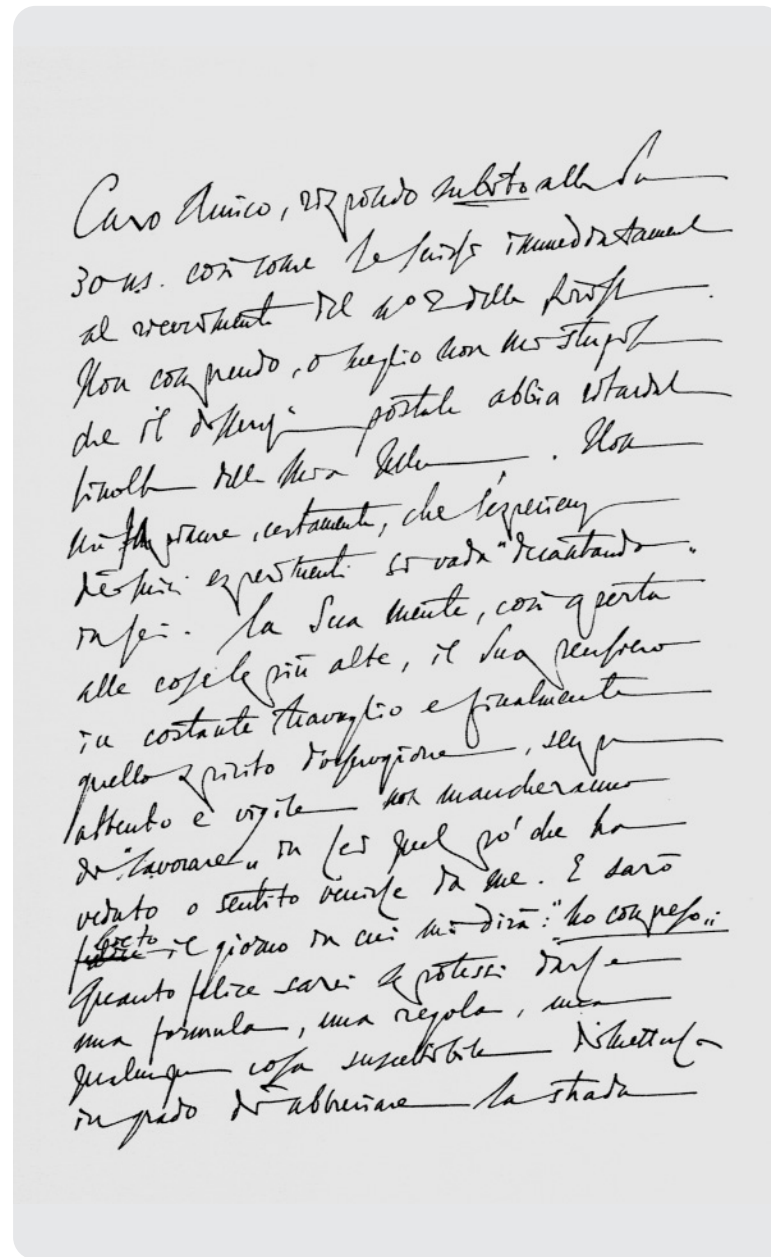 Caro Amico, rispondo subito alla Sua
30 us. così come Le scrissi immediatamente
al ricevimento del nº 2 della
Non comprendo, o meglio non mi stupisco
che il postale abbia ritardato
l'inoltro della mia lettera. Non
mi dispiace, certamente, che l'esperienza
dei miei esperimenti si vada "decantando"
in Lei. La Sua mente, così aperta
alle cose le più alte, il Suo pensiero
in costante travaglio e finalmente
quello spirito d'osservazione, sempre
attento e vigile non mancheranno
di "lavorare" in Lei quel pò che ha
veduto o sentito venirle da me. E sarò
lieto il giorno in cui mi dirà: "ho compreso".
Quanto felice sarei se potessi darle
una formula, una regola, una
qualunque cosa suscettibile di metterla
in grado di abbreviare la strada